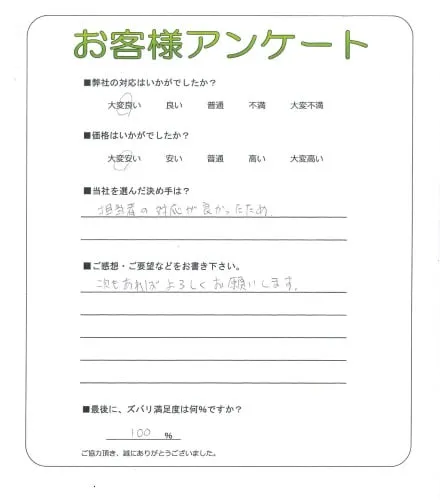 お客様アンケート
■弊社の対応はいかがでしたか?
大変良い 良い 普通 不満 大変不満
■価格はいかがでしたか?
大変安い 安い 普通 高い 大変高い
■当社を選んだ決め手は?
担当者の対応が良かったため.
■ご感想・ご要望などをお書き下さい。
次もあればよろしくお願いします。
■最後に、ズバリ満足度は何%ですか?
100 %
ご協力頂き、誠にありがとうございました。